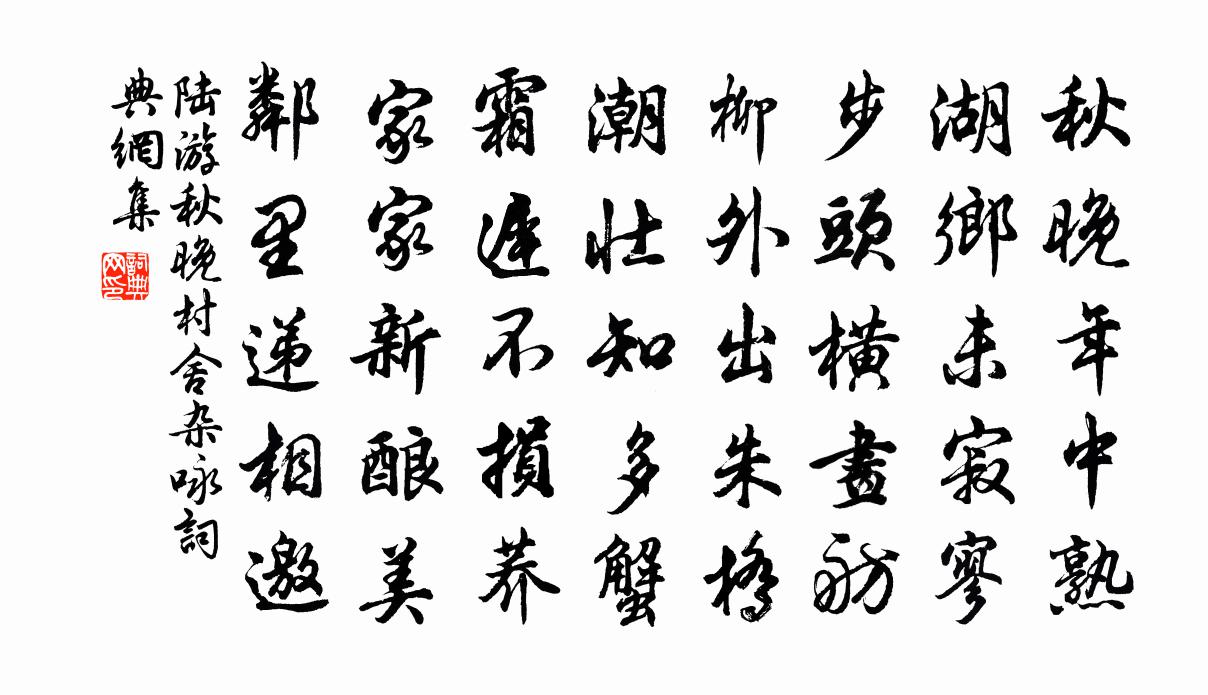 秋晚年中熟
湖鄉未寂寥
步頭橫畫舫
柳外出朱橋
潮壯知多蟹
霜遲不損荞
家家新酿美
鄰里递相邀
陆游秋晚村舍杂咏詞
典網集
詞典网印